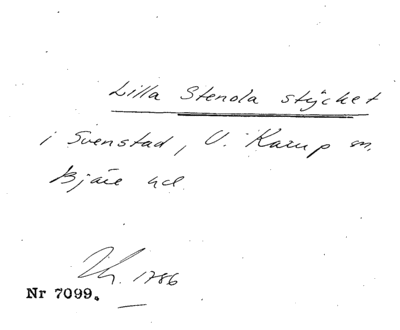 Lilla Stenola stycket
i Svenstad, V. Karup sn,
Bjäre hd.
Kr. 1786
Nr 7099.